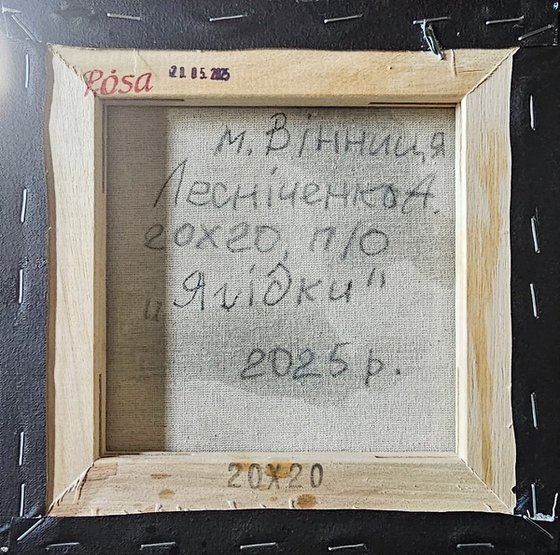 Rósa 20.05.2025
м. Вінниця
Лесніченко А.
20х20, п/о
"Ягідки"
2025 р.
20X20